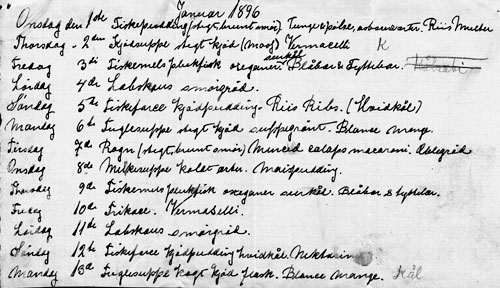 Januar 1896
Onsdag den 1de Fiskepudding (stegt, brunt smör) Tunge & pölse, Riis Mulder
Thorsdag - 2den Kjödsuppe stegt kjöd (moos) Vermacelli K
Fredag 3di Fiskemels plukfisk oxegane surkål Blåbär & Tyttebär. Kålrabi
Lördag 4de Labskaus smörgröd.
Söndag 5te Fiskefarce Kjödpudding. Riis Ribs. (Hvidkål)
Mandag 6te Fuglesuppe stegt kjöd suppegrönt. Blance mange.
Tirsdag 7de Rogn (stegt, brunt smör) macaroni. Äblegröd
Onsdag 8de Melkesuppe kolet ärter. Maispudding.
Thorsdag 9de Fiskemels plukfisk oxeganer surkål. Blåbär & tyttebär.
Fredag 10de Frikace. Vermaselli.
Lördag 11te Labskaus smörgröd.
Söndag 12te Fiskefarce kjödpudding hvidkål. Nektarin
Mandag 13de Fuglesuppe kogt kjöd flesk. Blance Mange. Kål